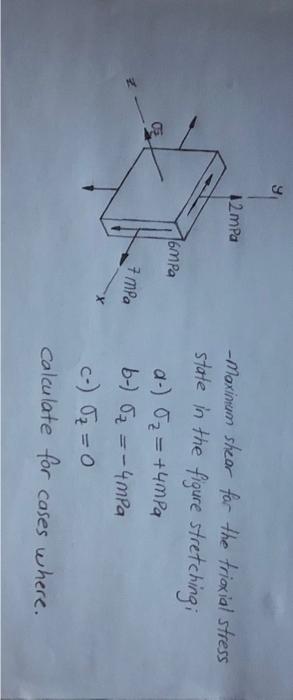 y
12 mPa
6 mPa
7 mPa
x
z
σz
-Maximum shear for the triaxial stress
state in the figure stretching;
a-) σz = +4 mPa
b-) σz = -4 mPa
c-) σz = 0
calculate for cases where.